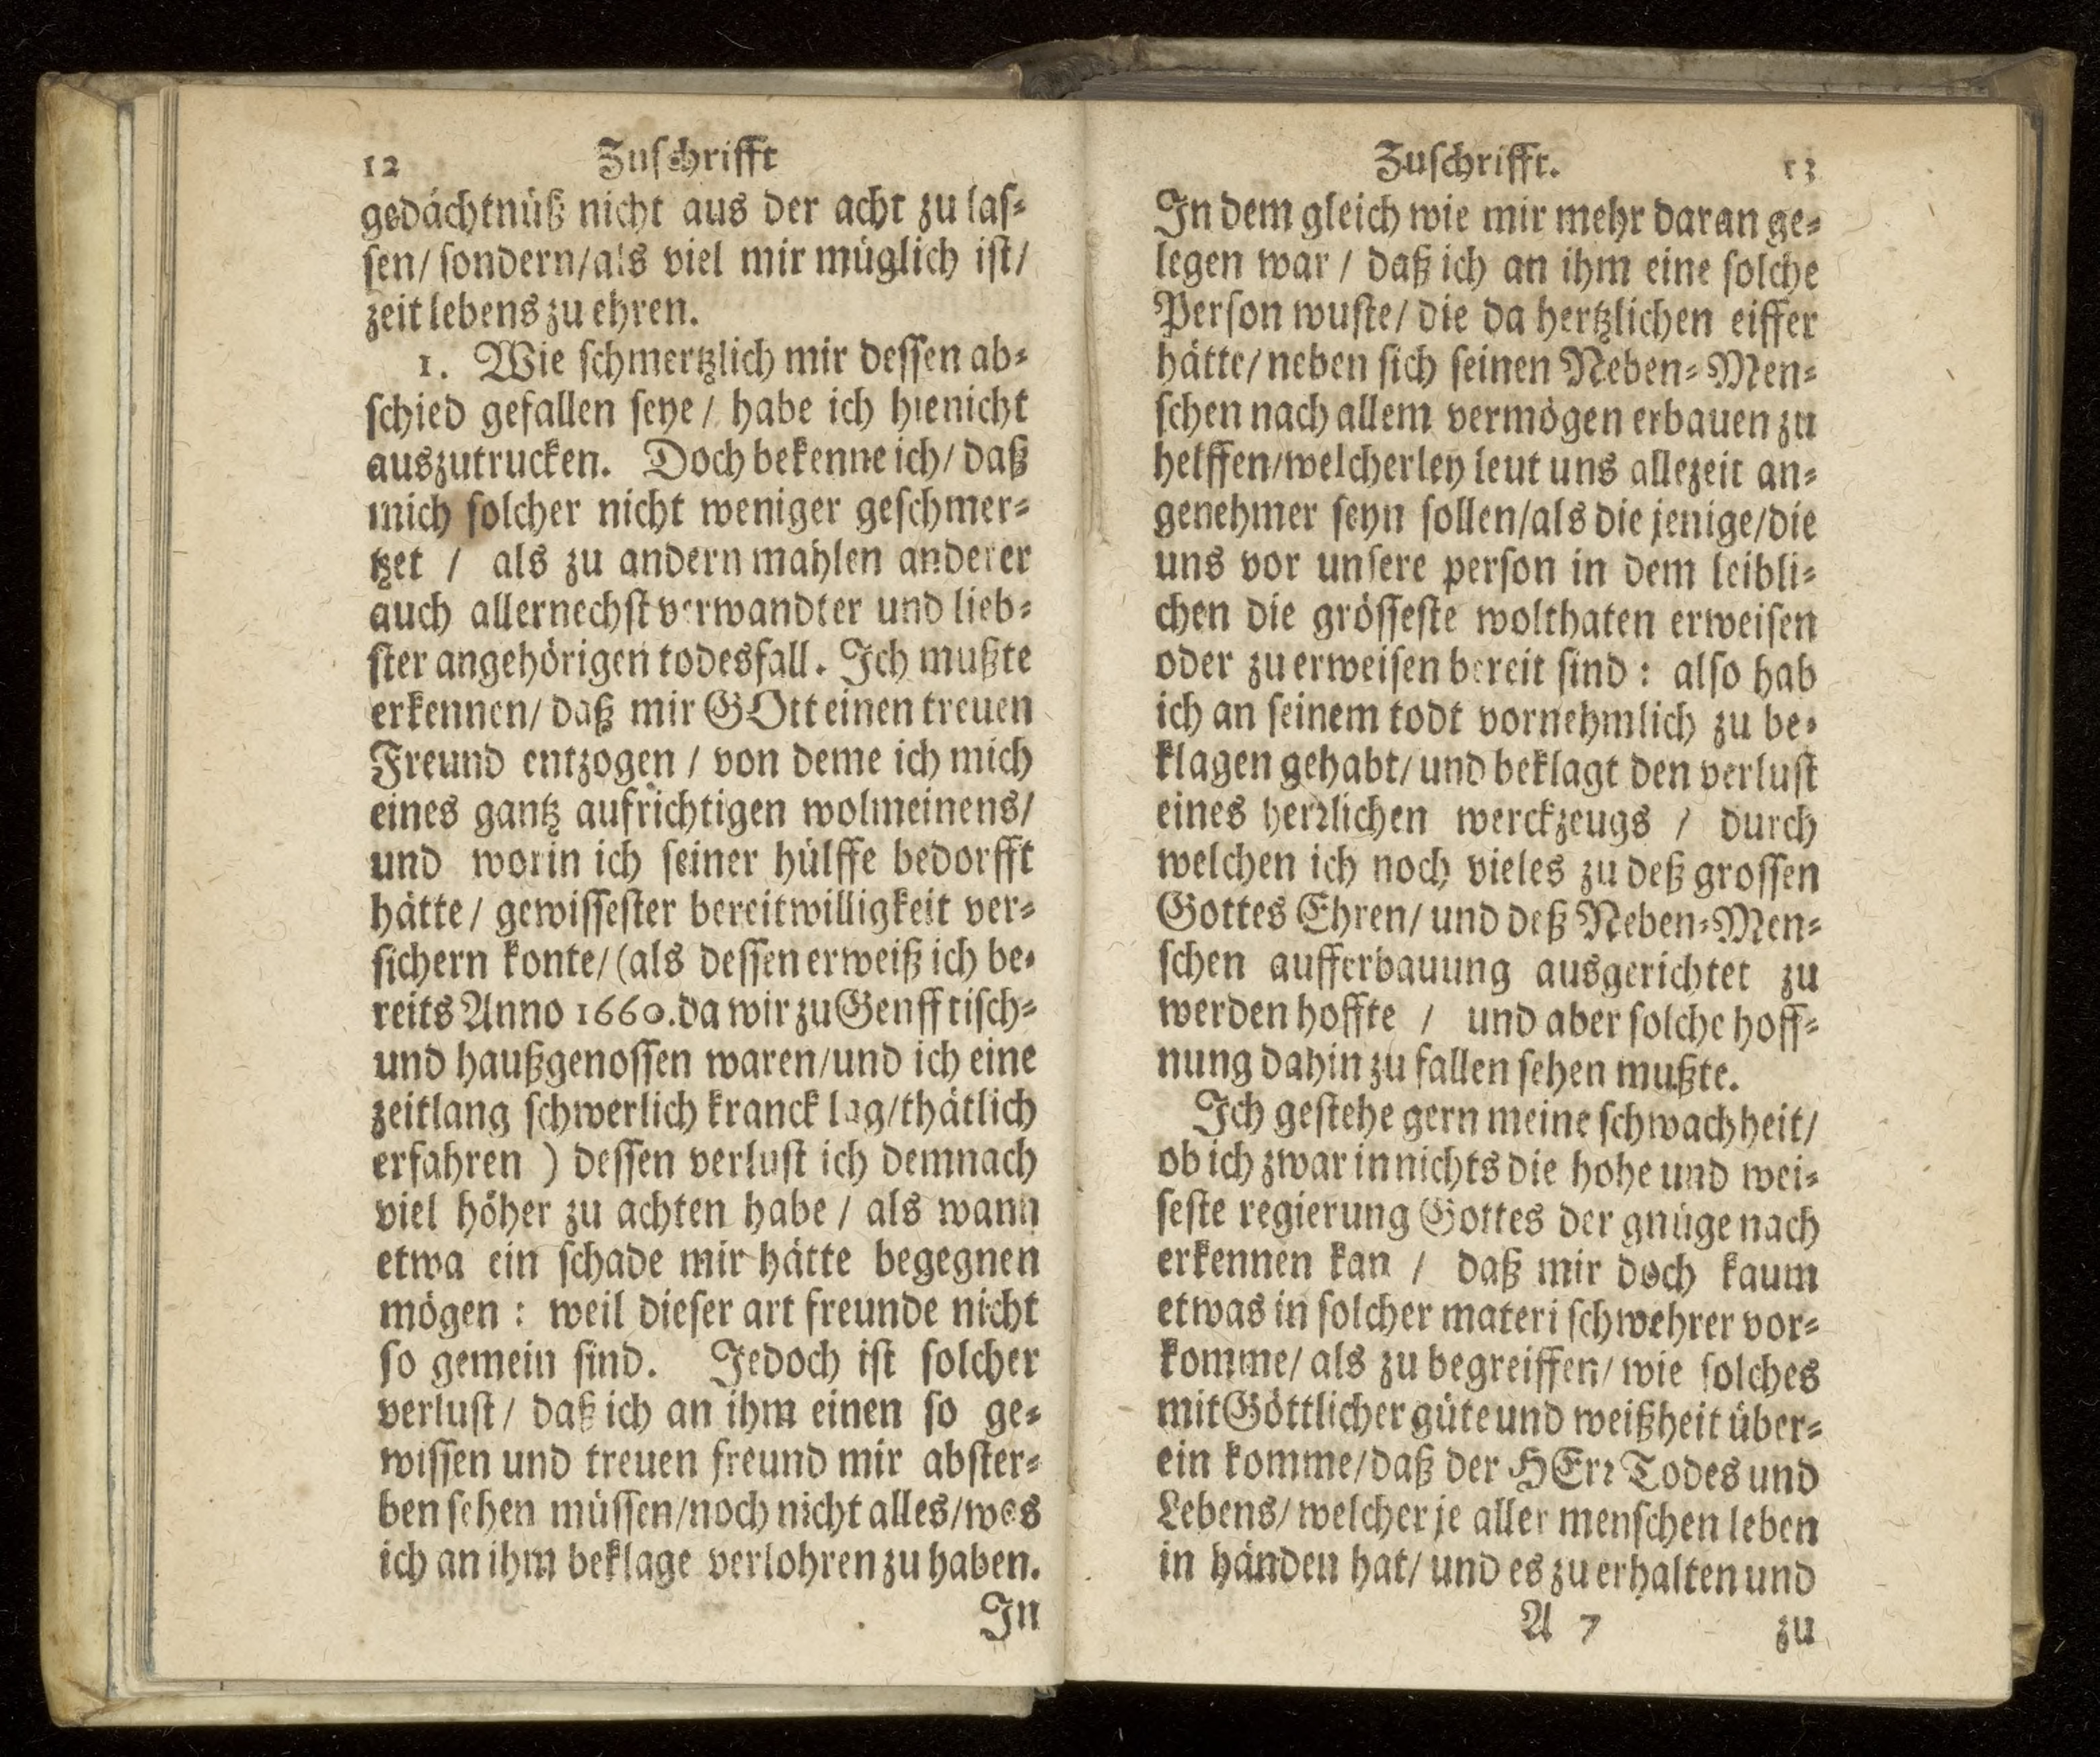 12 Zuſchrifft
gedächtnüß nicht aus der acht zu laſ⸗
ſen/ ſondern/als viel mir müglich iſt/
zeit lebens zu ehren.
1. Wie ſchmertzlich mir deſſen ab⸗
ſchied gefallen ſeye/ habe ich hienicht
auszutrucken. Doch bekenne ich/ daß
mich ſolcher nicht weniger geſchmer⸗
tzet / als zu andern mahlen anderer
auch allernechſt verwandter und lieb⸗
ſter angehörigen todesfall. Ich mußte
erkennen/ daß mir GOtt einen treuen
Freund entzogen / von deme ich mich
eines gantz aufrichtigen wolmeinens/
und worin ich ſeiner hülffe bedorfft
hätte/ gewiſſeſter bereitwilligkeit ver⸗
ſichern konte/ (als deſſen erweiß ich be⸗
reits Anno 1660. da wir zu Genff tiſch⸗
und haußgenoſſen waren/und ich eine
zeitlang ſchwerlich kranck lag/thätlich
erfahren ) deſſen verluſt ich demnach
viel höher zu achten habe / als wann
etwa ein ſchade mir hätte begegnen
mögen : weil dieſer art freunde nicht
ſo gemein ſind. Jedoch iſt ſolcher
verluſt/ daß ich an ihm einen ſo ge⸗
wiſſen und treuen freund mir abſter⸗
ben ſehen müſſen/noch nicht alles/was
ich an ihm beklage verlohren zu haben.
In
Zuſchrifft. 13
In dem gleich wie mir mehr daran ge⸗
legen war / daß ich an ihm eine ſolche
Perſon wuſte/ die da hertzlichen eiffer
hätte/ neben ſich ſeinen Neben⸗Men⸗
ſchen nach allem vermögen erbauen zu
helffen/welcherley leut uns allezeit an⸗
genehmer ſeyn ſollen/als die jenige/die
uns vor unſere perſon in dem leibli⸗
chen die gröſſeſte wolthaten erweiſen
oder zu erweiſen bereit ſind : alſo hab
ich an ſeinem todt vornehmlich zu be⸗
klagen gehabt/ und beklagt den verluſt
eines herꝛlichen werckzeugs / durch
welchen ich noch vieles zu deß groſſen
Gottes Ehren/ und deß Neben⸗Men⸗
ſchen aufferbauung ausgerichtet zu
werden hoffte / und aber ſolche hoff⸗
nung dahin zu fallen ſehen mußte.
Ich geſtehe gern meine ſchwachheit/
ob ich zwar in nichts die hohe und wei⸗
ſeſte regierung Gottes der gnüge nach
erkennen kan / daß mir doch kaum
etwas in ſolcher materi ſchwehrer vor⸗
komme/ als zu begreiffen/ wie ſolches
mit Göttlicher güte und weißheit über⸗
ein komme/daß der HErꝛ Todes und
Lebens/ welcher je aller menſchen leben
in händen hat/ und es zu erhalten und
A 7 zu